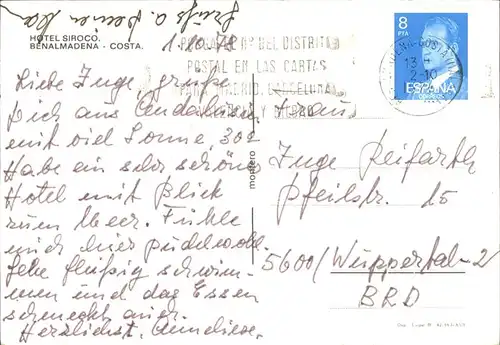 Grüße a. Deinen
HOTEL SIROCO.
BENALMADENA - COSTA.
1.10.78
Liebe Inge, grüße
Dich aus Andalusien
mit viel Sonne, 30°
Habe ein sehr schönes
Hotel mit Blick
zum Meer. Fühle
mich hier pudelwohl.
Gehe fleißig schwim-
men und das Essen
schmeckt auch.
Herzlichst, Anneliese.
DEL DISTRITO
POSTAL EN LAS CARTAS
PARA MADRID, BARCELONA,
Y BILBAO
montero
8
PTA
ESPAÑA
CORREOS
13
2-10
Frau
Inge Reifarth
Pfeilstr. 15
5600/Wuppertal-2
BRD